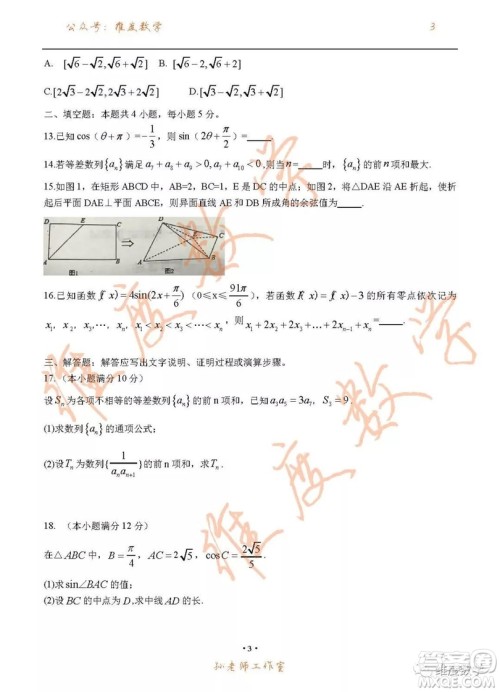 公众号：维度数学 3
A. [√6-√2,√6+√2] B. [√6-√2,√6+2]
C.[2√3-2√2,2√3+2√2] D.[√3-√2,√3+√2]
二、填空题：本题共 4 小题，每小题 5 分。
13.已知 cos（θ+π）=-1/3，则 sin（2θ+π/2）=_____.
14.若等差数列{aₙ}满足 a₇+a₈+a₉>0,a₇+a₁₀<0,则当n=_____时，{aₙ}的前 n 项和最大.
15.如图1，在矩形 ABCD 中，AB=2，BC=1，E 是 DC 的中点；如图 2，将△DAE 沿 AE 折起，使折
起后平面 DAE⊥平面 ABCE，则异面直线 AE 和 DB 所成角的余弦值为_____.
D E C
A B
图1
D C
E
A B
图2
16.已知函数 f（x）=4sin(2x+π/6)（0≤x≤91π/6），若函数 F（x）=f（x）-3 的所有零点依次记为
x₁，x₂，x₃，…，xₙ，x₁<x₂<x₃<…<xₙ，则 x₁+2x₂+2x₃+…+2xₙ₋₁+xₙ=____.
三、解答题：解答应写出文字说明、证明过程或演算步骤。
17.（本小题满分 10 分）
设 Sₙ 为各项不相等的等差数列{aₙ}的前 n 项和，已知 a₃a₅=3a₇，S₃=9.
(1)求数列{aₙ}的通项公式；
(2)设 Tₙ 为数列{1/(aₙaₙ₊₁)}的前 n 项和，求 Tₙ.
18.（本小题满分 12 分）
在△ABC 中，B=π/4，AC=2√5，cosC=2√5/5.
(1)求 sin∠BAC 的值；
(2)设 BC 的中点为 D,求中线 AD 的长.
维度数学
• 3 •
孙老师工作室